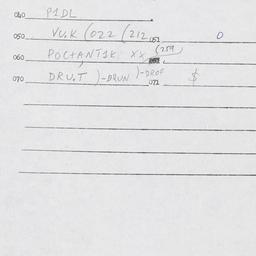 040 P1DL
050 VU.K (022 (212 051 0
060 POCTANT1K XX (259)
070 DRU.T )-DRUN )-DROF 071 $